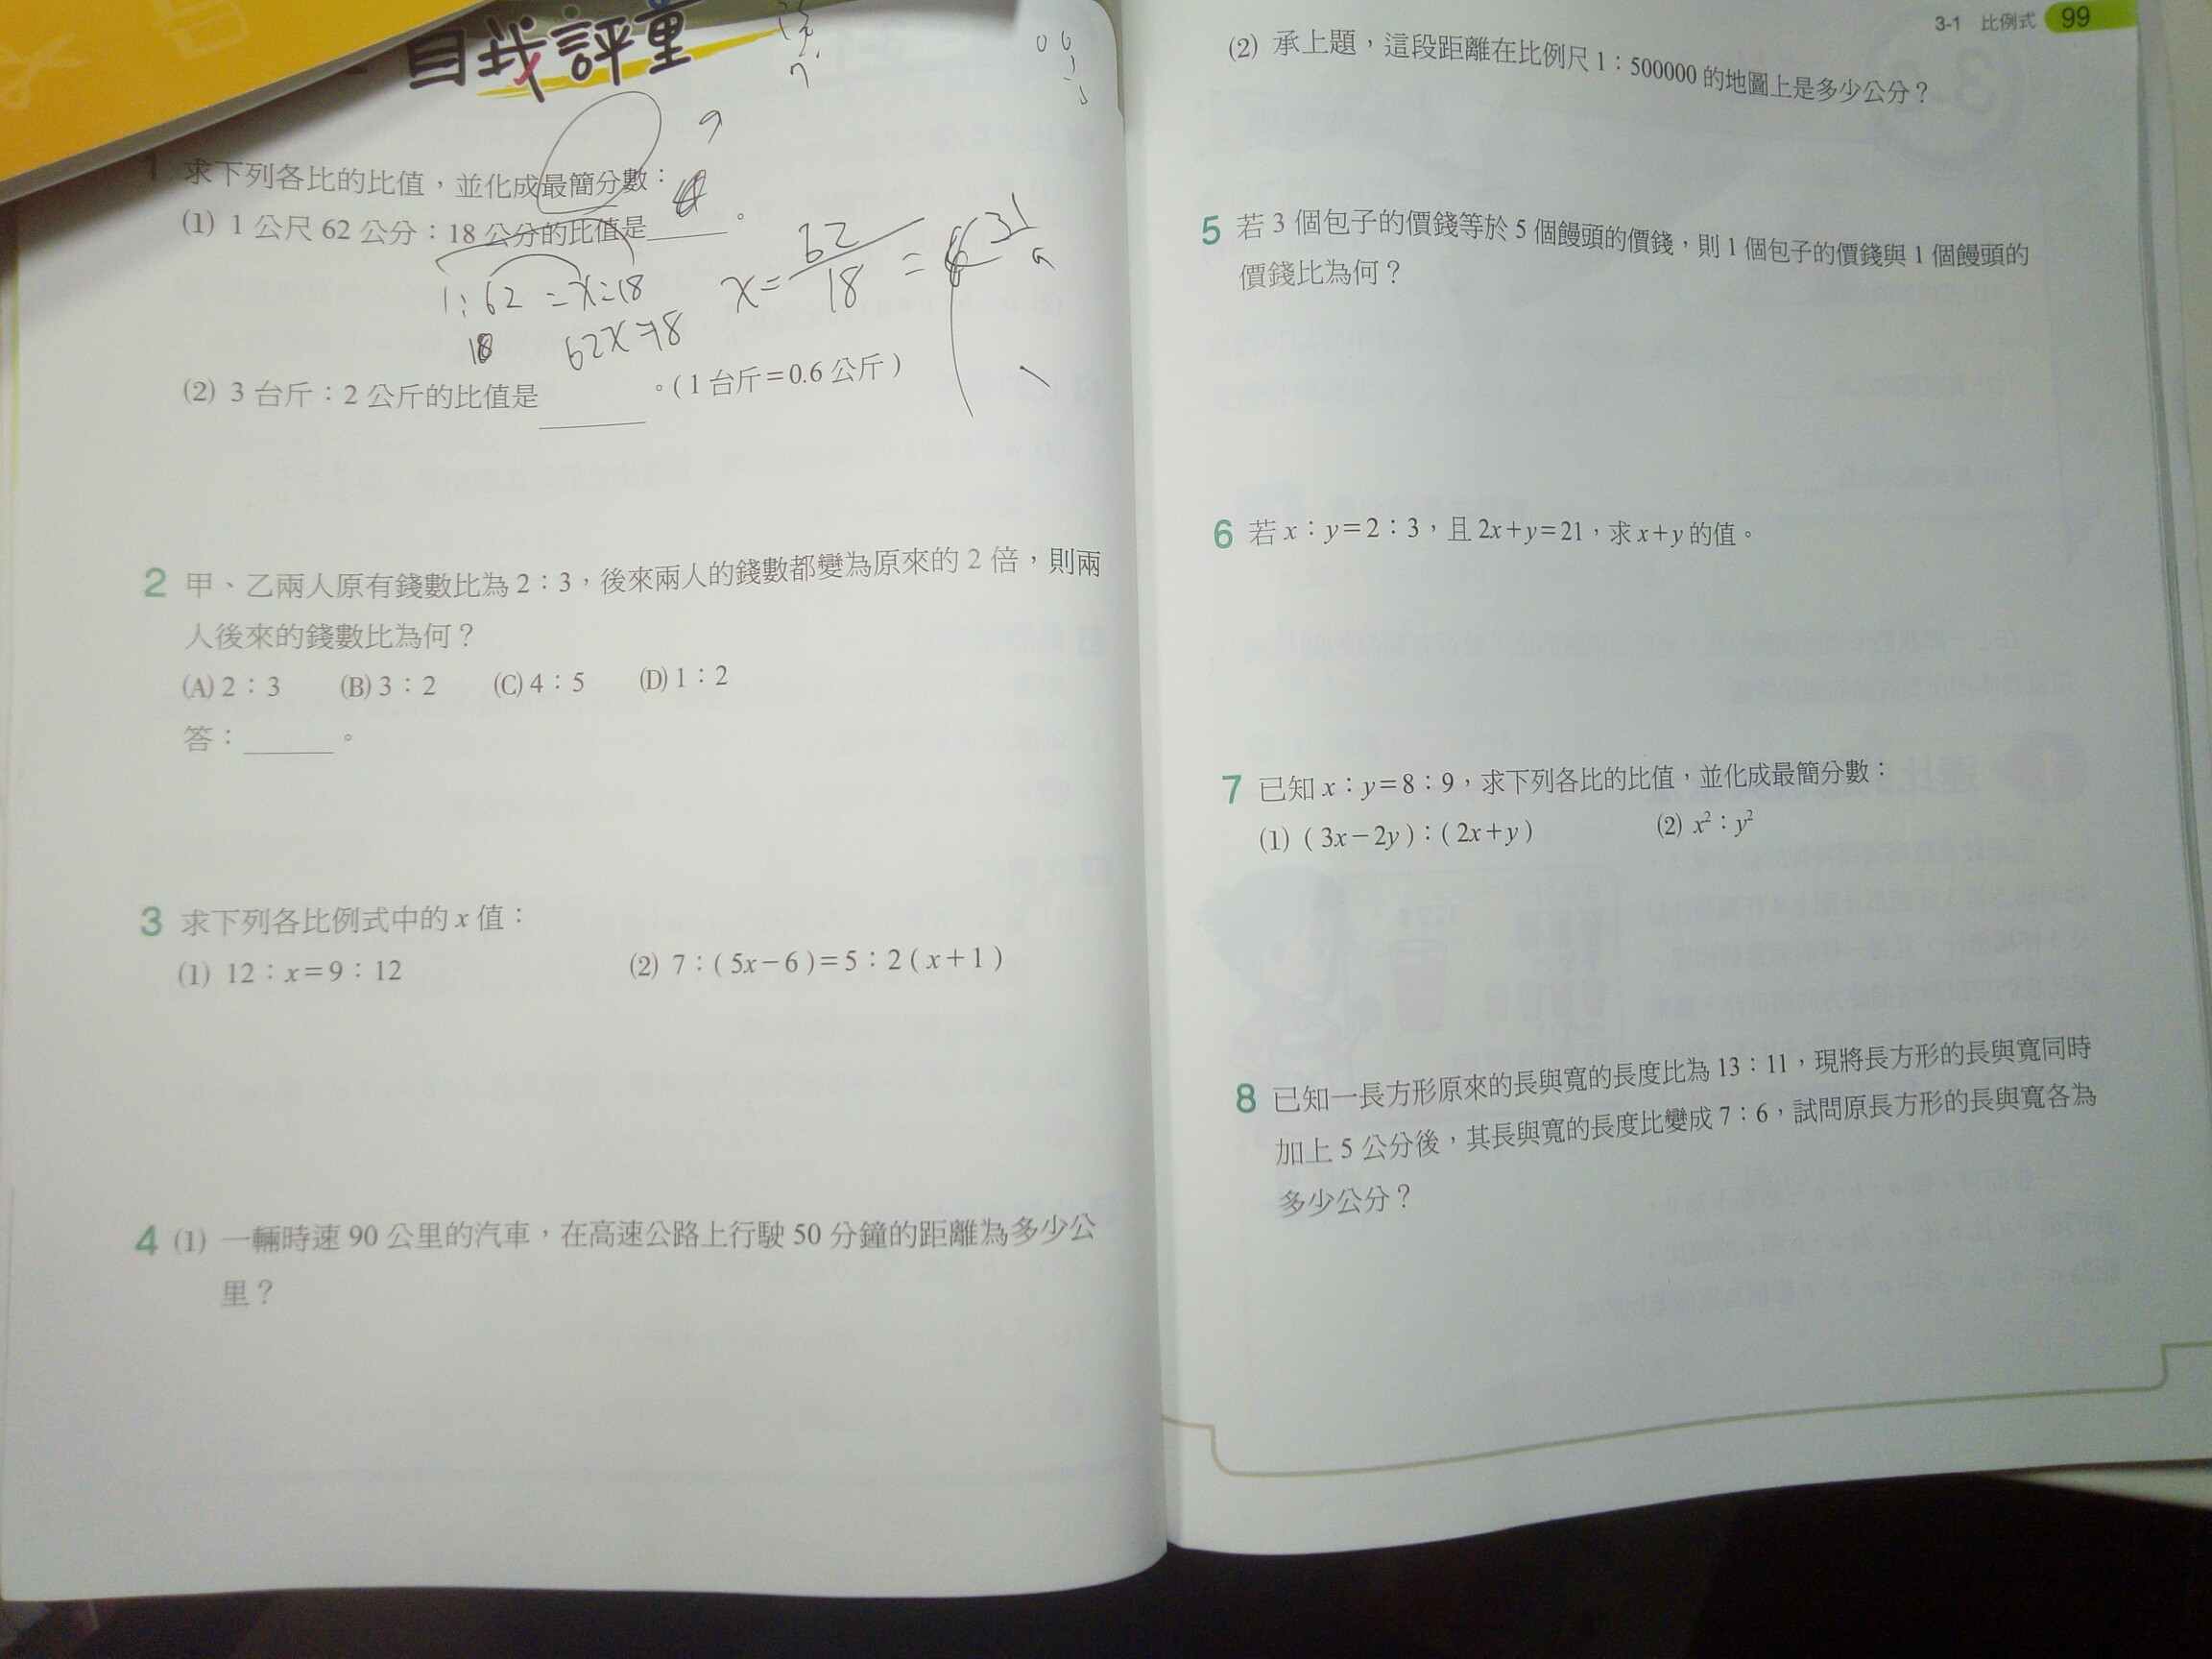 自我評量
1 求下列各比的比值，並化成最簡分數：
(1) 1 公尺 62 公分：18 公分的比值是______。
1:62=x:18
18
62x=18
x=62/18=
31
9
(2) 3 台斤：2 公斤的比值是______。( 1 台斤＝0.6 公斤 )
2 甲、乙兩人原有錢數比為 2：3，後來兩人的錢數都變為原來的 2 倍，則兩
人後來的錢數比為何？
(A) 2：3 (B) 3：2 (C) 4：5 (D) 1：2
答：______。
3 求下列各比例式中的 x 值：
(1) 12：x＝9：12 (2) 7：( 5x－6 )＝5：2 ( x＋1 )
4 (1) 一輛時速 90 公里的汽車，在高速公路上行駛 50 分鐘的距離為多少公
里？
3-1 比例式 99
(2) 承上題，這段距離在比例尺 1：500000 的地圖上是多少公分？
5 若 3 個包子的價錢等於 5 個饅頭的價錢，則 1 個包子的價錢與 1 個饅頭的
價錢比為何？
6 若 x：y＝2：3，且 2x＋y＝21，求 x＋y 的值。
7 已知 x：y＝8：9，求下列各比的比值，並化成最簡分數：
(1) ( 3x－2y )：( 2x＋y ) (2) x²：y²
8 已知一長方形原來的長與寬的長度比為 13：11，現將長方形的長與寬同時
加上 5 公分後，其長與寬的長度比變成 7：6，試問原長方形的長與寬各為
多少公分？